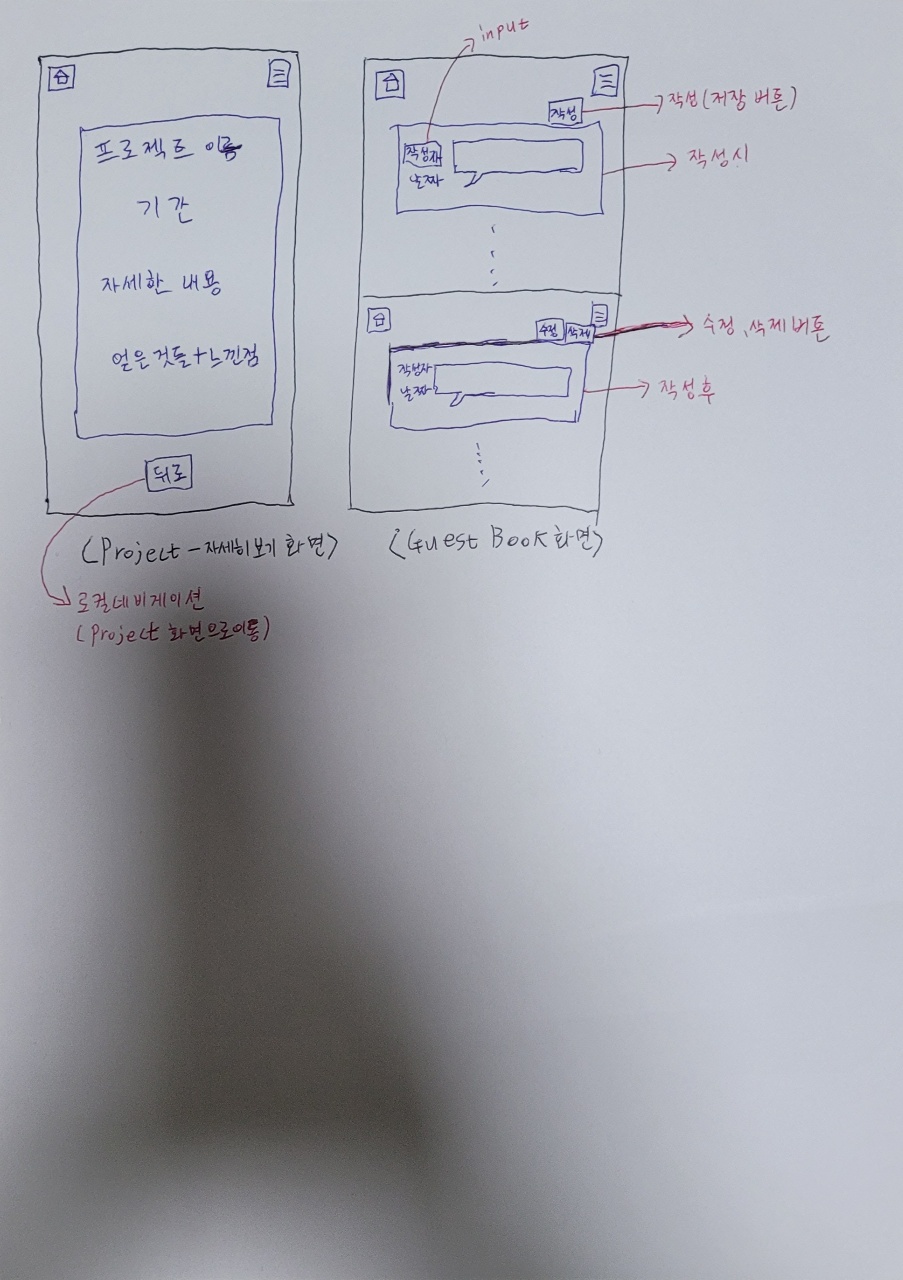 input
프로젝트 이름
기간
자세한 내용
얻은것들+느낀점
뒤로
<Project - 자세히보기 화면>
로컬네비게이션
(Project 화면으로이동)
작성
작성(저장 버튼)
작성자
날짜
작성시
수정 삭제
수정, 삭제버튼
작성자
날짜
작성후
<Guest Book 화면>